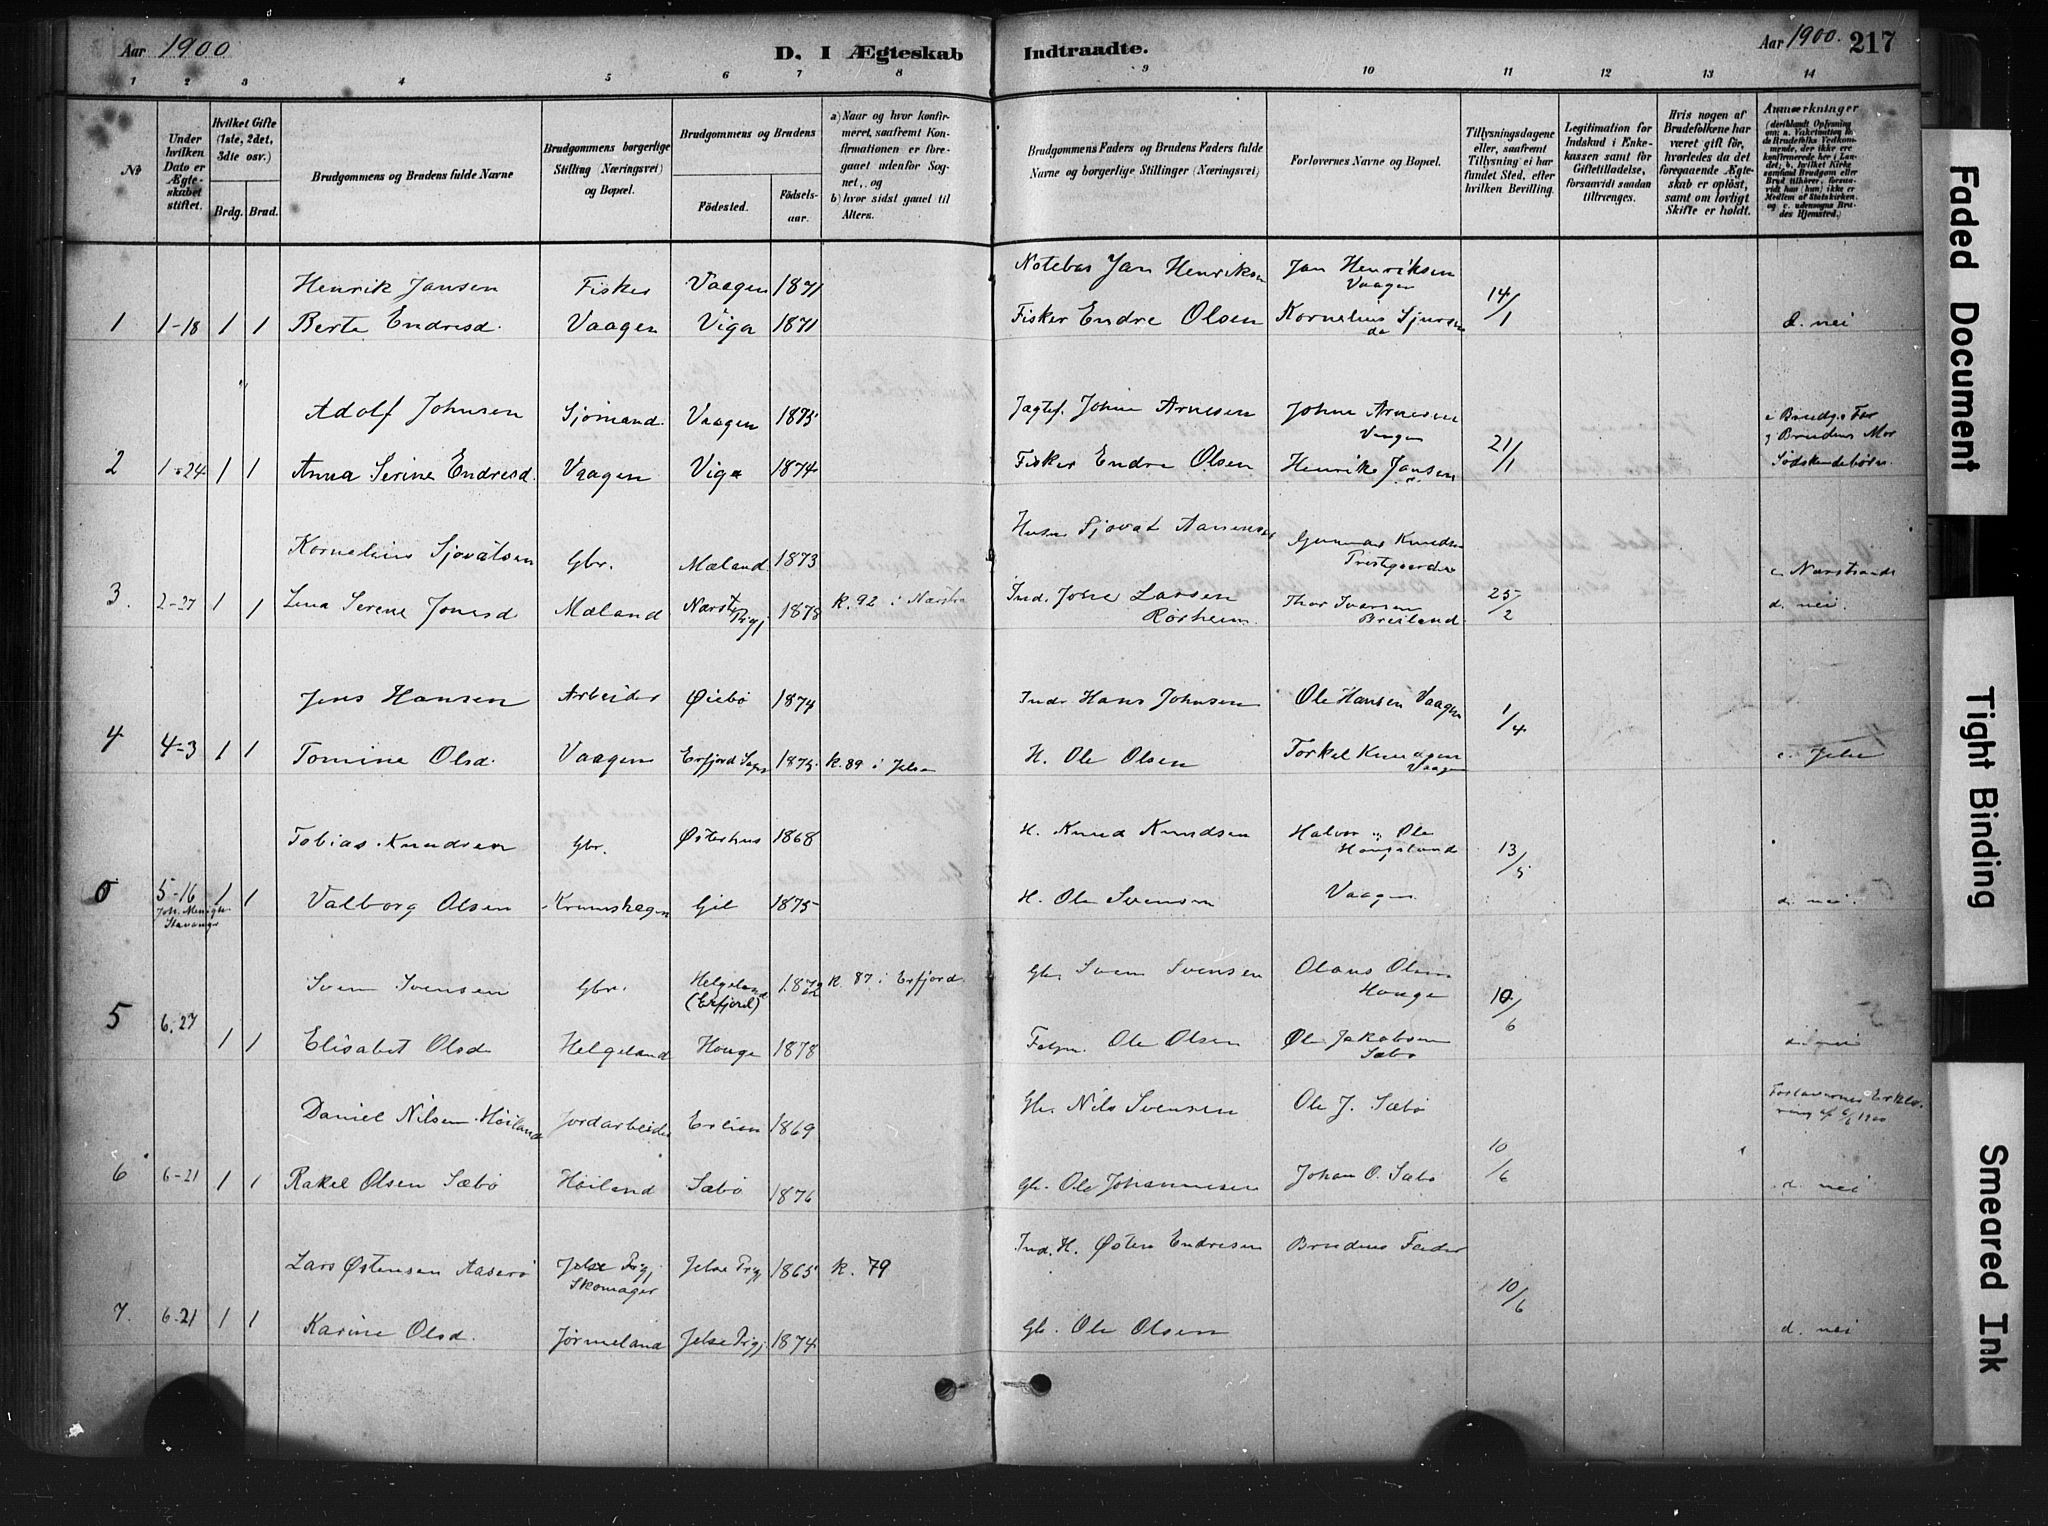 Aar 1900
D. I Ægteskab Indtraadte.
Aar 1900. 217
1 2 3 4 5 6 7 8 9 10 11 12 13 14
No
Under hvilken Dato er Ægteskabet stiftet.
Hvilket Gifte (1ste, 2det, 3die osv.)
Brdg. Brud.
Brudgommens og Brudens fulde Navne
Brudgommens borgerlige Stilling (Næringsvei) og Bopæl.
Brudgommens og Brudens
Fødested.
Fødselsaar.
a) Naar og hvor konfirmeret, saafremt Konfirmationen er foregaaet udenfor Sognet, og
b) hvor sidst gaaet til Alters.
Brudgommens Faders og Brudens Faders fulde Navne og borgerlige Stillinger (Næringsvei)
Forlovernes Navne og Bopæl.
Tillysningsdagene eller, saafremt Tillysning ei har fundet Sted, efter hvilken Bevilling.
Legitimation for Indskud i Enkekassen samt for Giftetilladelse, forsaavidt saadan tiltrænges.
Hvis nogen af Brudefolkene har været gift før, hvorledes da det foregaaende Ægteskab er opløst, samt om lovligt Skifte er holdt.
Anmærkninger
Henrik Jansen Fisker Vaagen 1871 Notebas Jan Henriksen Jan Henriksen Vaagen
1 1-18 1 1 Berte Endresd. Vaagen Viga 1871 Fisker Endre Olsen Kornelius Sjursen do 14/1 d. nei
Adolf Johnsen Sjømand. Vaagen 1875 Jagtef. Johne Arnesen Johne Arnesen Vaagen Brudg. Far
og Brudens Mor
2 1-24 1 1 Anna Serine Endresd. Vaagen Viga 1874 Fisker Endre Olsen Henrik Jansen 21/1 Sødskendebørn.
Kornelius Sjovatsen Gbr. Mæland 1873 Sjovat Aanensen Gunnar Knudsen Prestgaarden
c Nærstrand
3. 2-27 1 1 Lena Serene Jonesd Mæland Nærst. Prgj. 1878 k. 92 i Nærstra Ind. Johe Larsen Rørheim Thor Ivarsen Breiland 25/2 d. nei.
Jens Hansen Arbeider Øiebø 1874 Inds Hans Johnsen Ole Hansen Vaagen
4 4-3 1 1 Tomine Olsd. Vaagen Erfjord Sogn 1875 k. 89 i Jelse H. Ole Olsen Torkel Knudsen Vaagen 1/4 c. Jelse
Tobias Knudsen Gbr. Østerhus 1868 H. Knud Knudsen Halvor og Ole Hougeland
0 5-16 1 1 Valborg Olsen Krumshagen Gil 1875 H. Ole Svensen Vaagen 13/5 d. nei.
Stavanger
Sven Svensen Gbr. Helgeland (Erfjord) 1872 k. 87 i Erfjord Gb. Sven Svensen Olaus Olsen Houge
5 6.27 1 1 Elisabet Olsd Helgeland Houge 1878 Ole Olsen Ole Jakobsen Sæbø 10/6 d. nei
Daniel Nilsen Høiland Jordarbeider Erlien 1869 Gb. Nils Svensen Ole J. Sæbø Forlovernes Erklæring af 6/6 1900
6 6-21 1 1 Rakel Olsen Sæbø Høiland Sæbø 1876 Gb. Ole Johannesen Johan O. Sæbø 10/6 d. nei
Lars Østensen Aaserø Jelse Prgj. Skomager Jelse Prgj 1865 k. 79 Ind. H. Østen Endresen Brudens Fader
7. 6-21 1 1 Karine Olsd. Jørmeland Jelse Prgj 1874 Gb. Ole Olsen 10/6 d. nei
Faded Document
Tight Binding
Smeared Ink